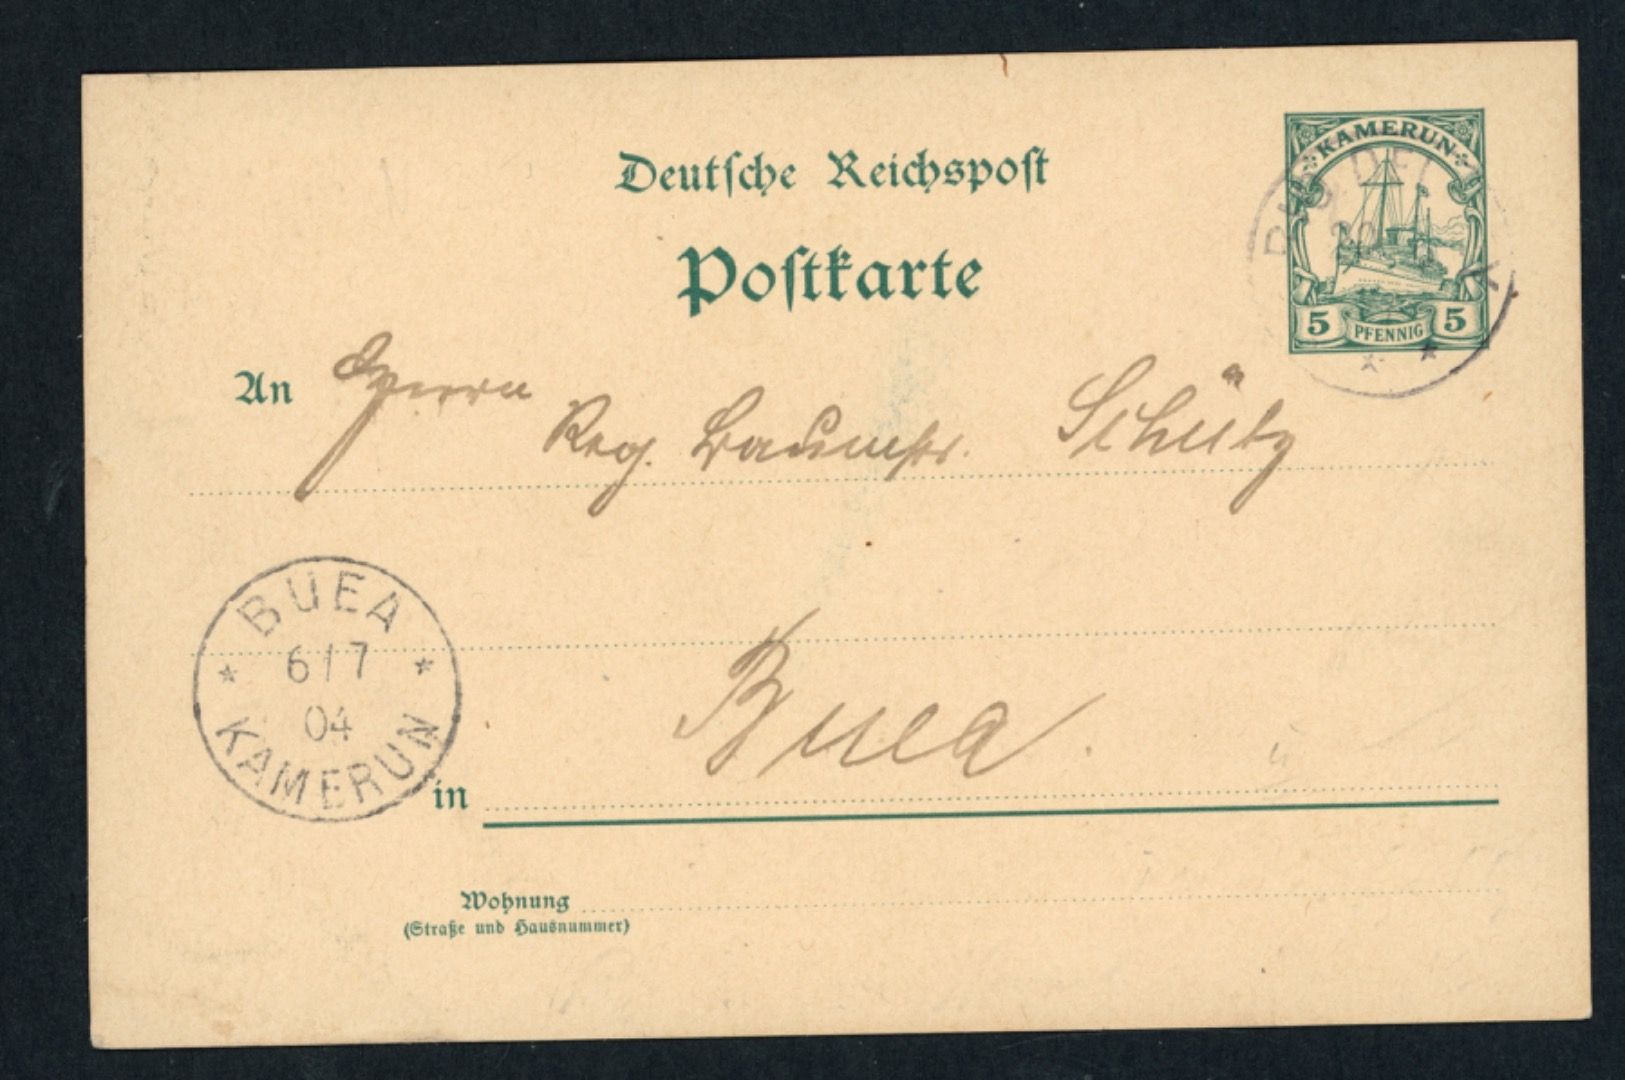 Deutsche Reichspost
KAMERUN
Postkarte
5 PFENNIG 5
An Herrn
Reg. Baumstr. Schütz
BUEA
6/7
04
KAMERUN
Buea.
in
Wohnung
(Straße und Hausnummer)